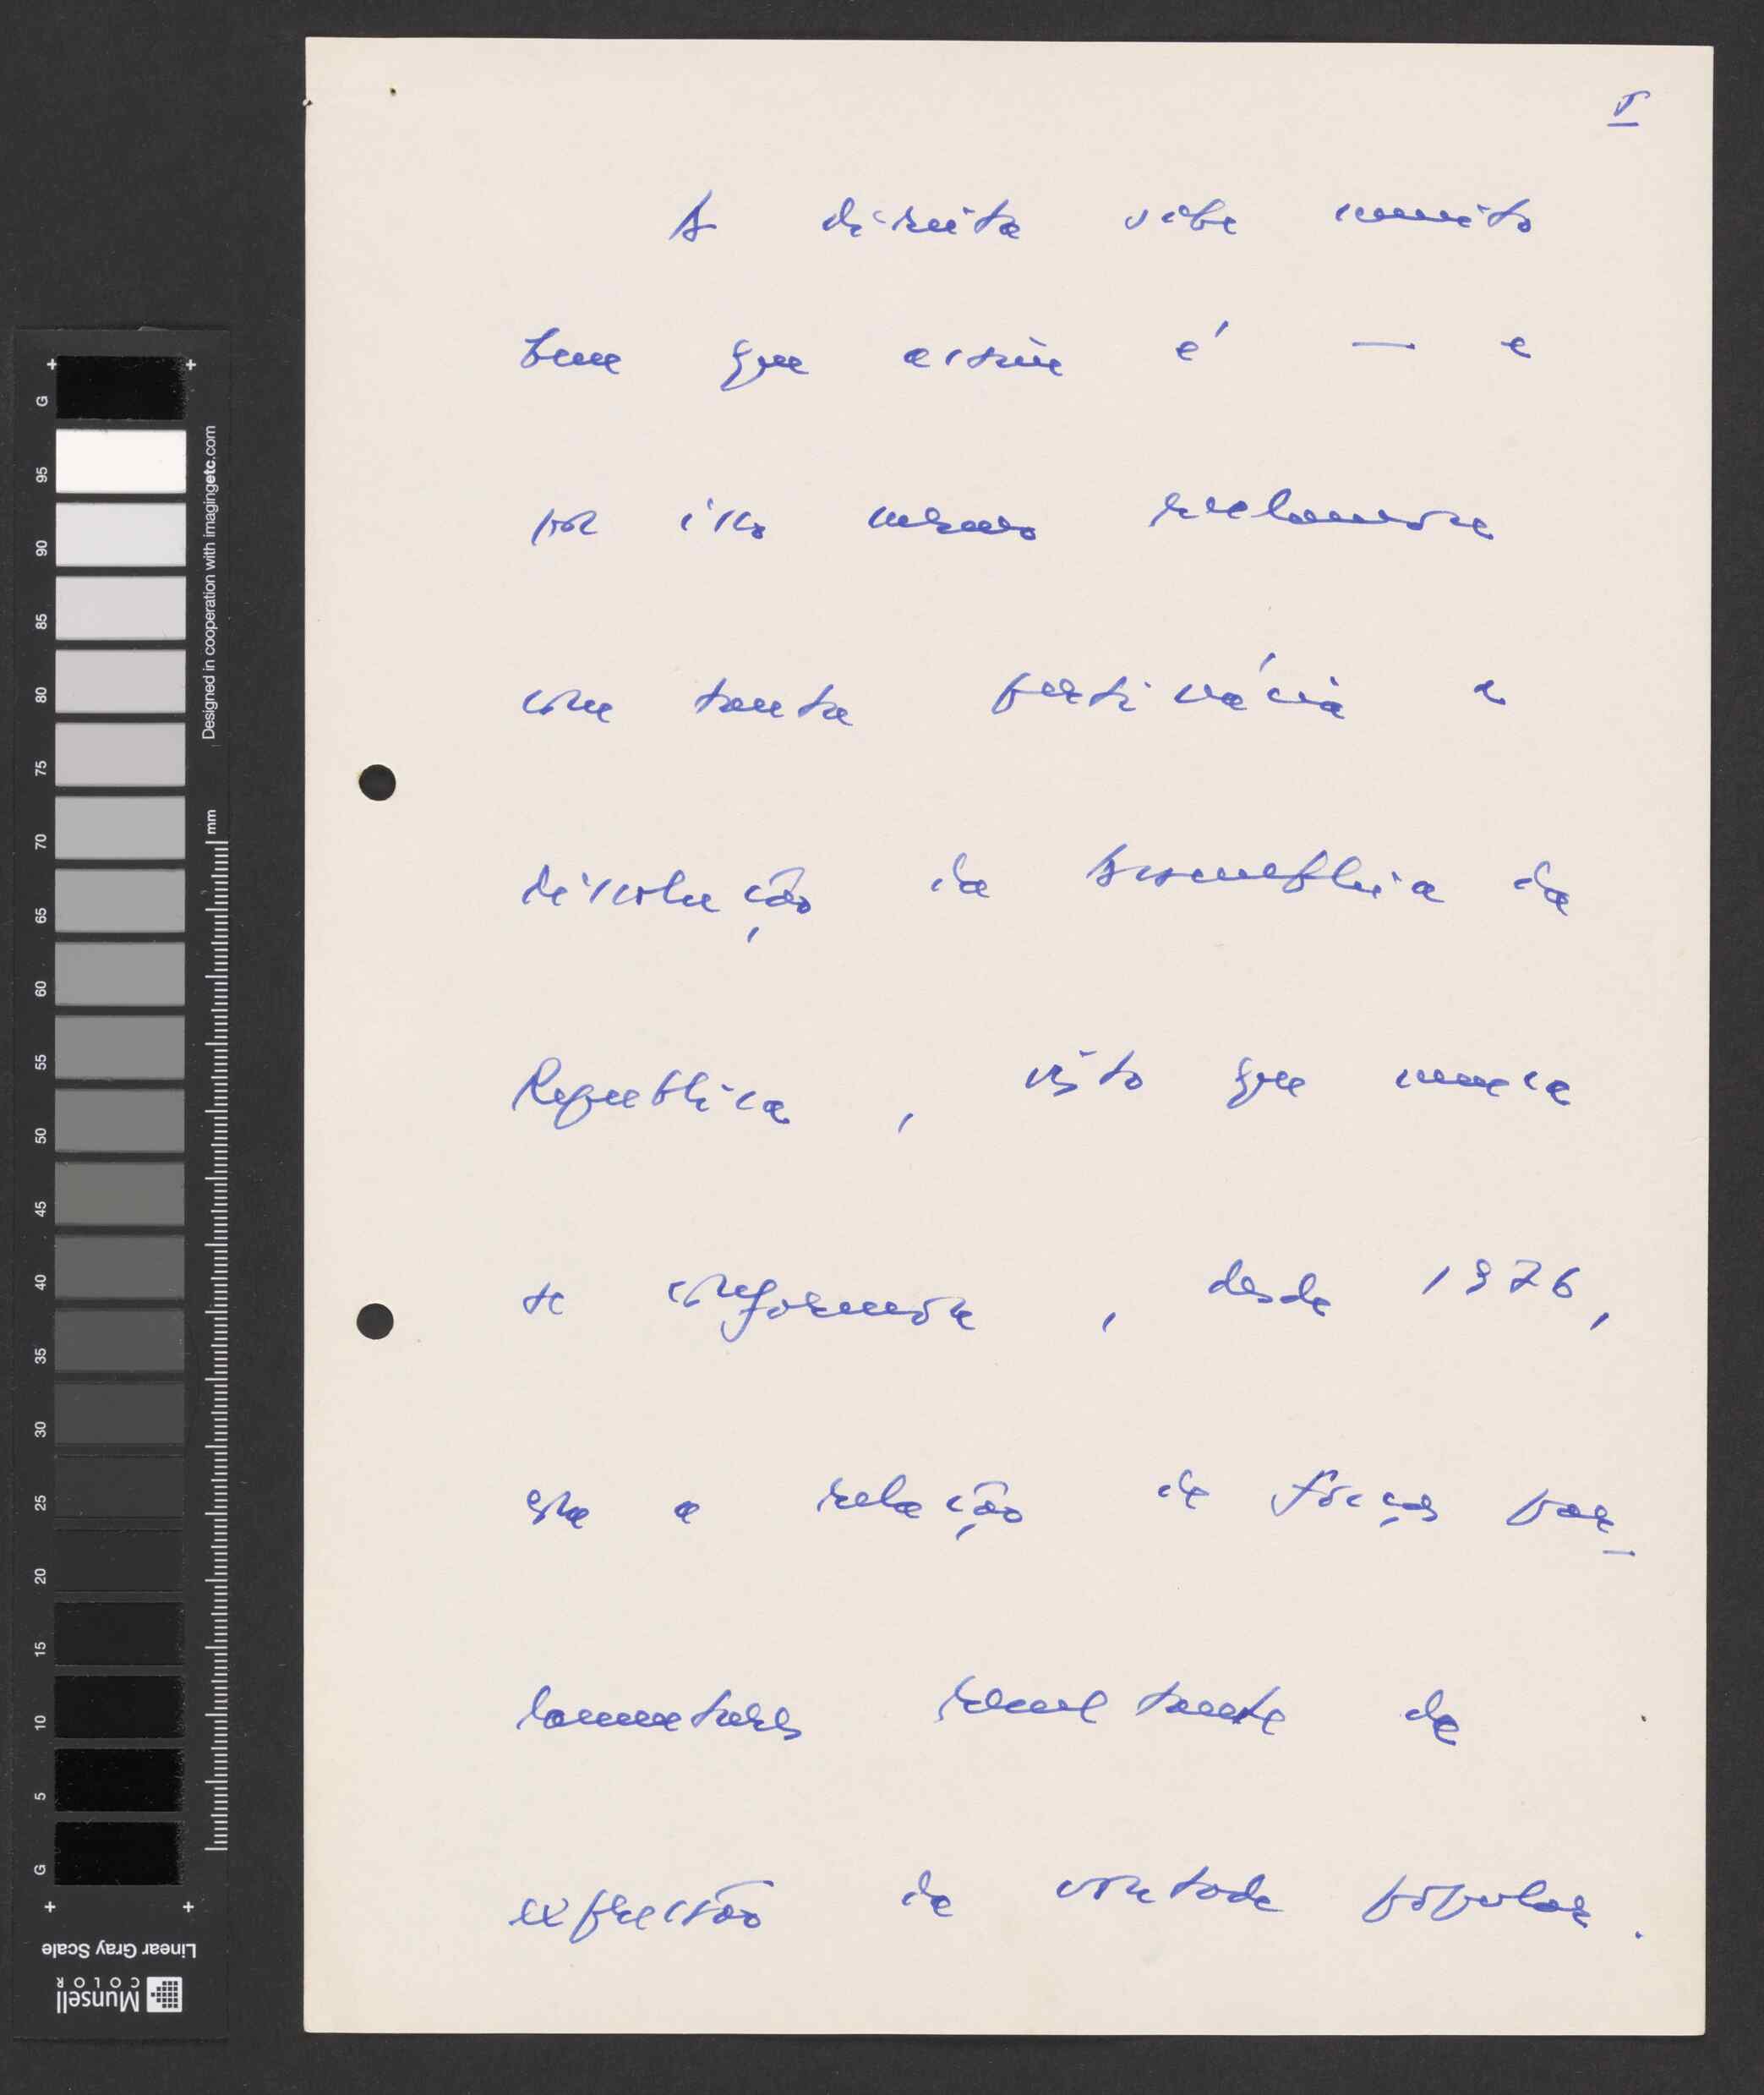 5
A direita sabe muito
bem que assim é — e
por isso mesmo reclamou
com tanta pertinácia a
dissolução da Assembleia da
Republica, visto que nunca
se conformou, desde 1976,
com a relação de forças par-
lamentares resultante da
expressão da vontade popular.
G
95
90
85
80
75
70
65
60
55
50
45
40
35
30
25
20
15
10
5
G
Designed in cooperation with imagingetc.com
mm
Linear Gray Scale
Munsell
COLOR